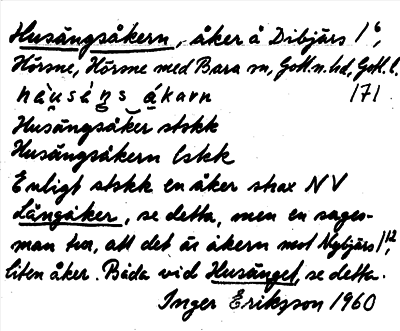 Husängsåkern, åker å Dibjärs 1⁶,
Hörsne, Hörsne med Bara sn, Gotl. n. hd, Gotl. l.
hàusàns ákarn 171
Husängsåker stskk
Husängsåkern lskk
Enligt stskk en åker strax NV
Långåker, se detta, men en sages-
man tror, att det är åkern mot Nybjärs 1¹²,
liten åker. Båda vid Husänget, se detta.
Inger Eriksson 1960